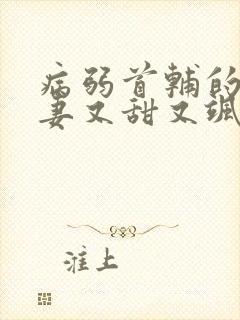 病弱首辅的
妻又甜又飒
淮上